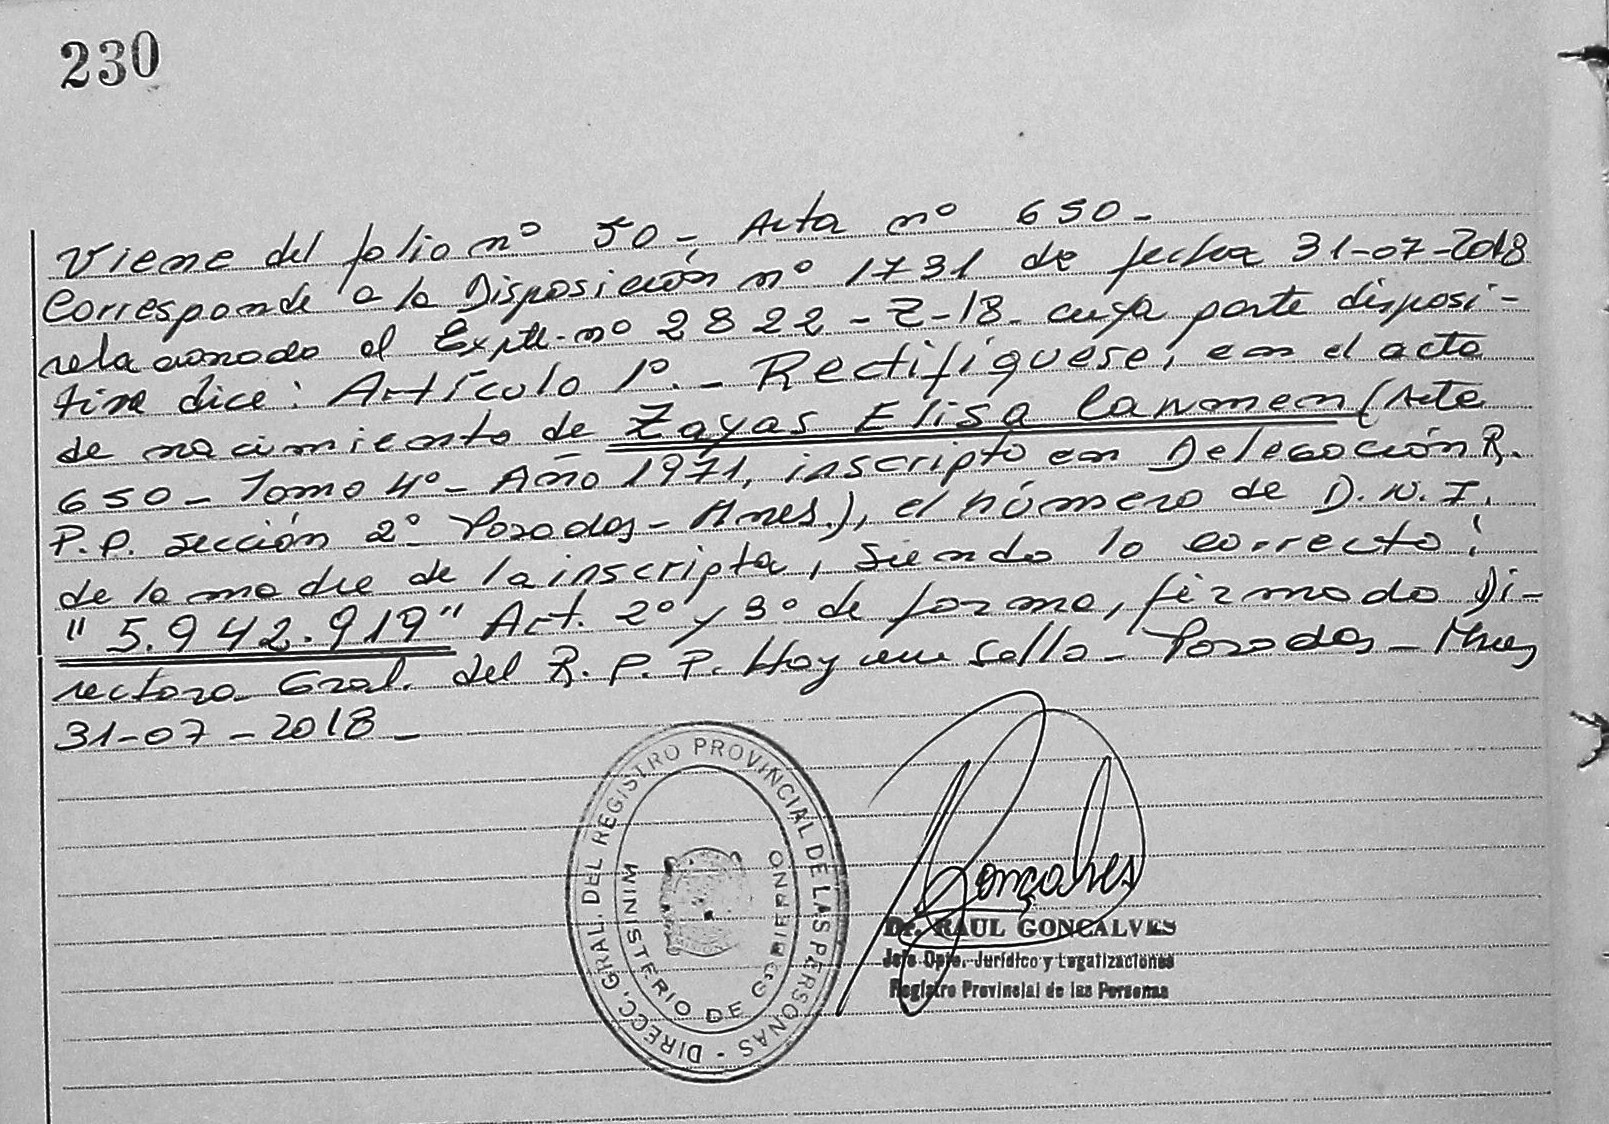 230
Viene del folio nº 50 - Acta nº 650 -
Corresponde a la Disposición nº 1731 de fecha 31-07-2018
relacionado al Expte. nº 2822 - Z - 18 - cuya parte disposi-
tiva dice: Artículo 1º. - Rectifíquese, en el acta
de nacimiento de Zayas Elisa Carmen (Acta
650 - Tomo 4º - Año 1971, inscripto en Delegación R.
P.P. Sección 2º Posadas - Mnes.), el número de D.N.I.
de la madre de la inscripta, siendo lo correcto:
"5.942.919" Art. 2º y 3º de forma, firmado Di-
rectora Gral. del R.P.P. Hay un sello - Posadas - Mnes
31-07-2018 -
DIRECC. GRAL. DEL REGISTRO PROVINCIAL DE LAS PERSONAS -
MINISTERIO DE GOBIERNO
Gonçalves
Dr. RAUL GONCALVES
Jefe Dpto. Jurídico y Legalizaciones
Registro Provincial de las Personas